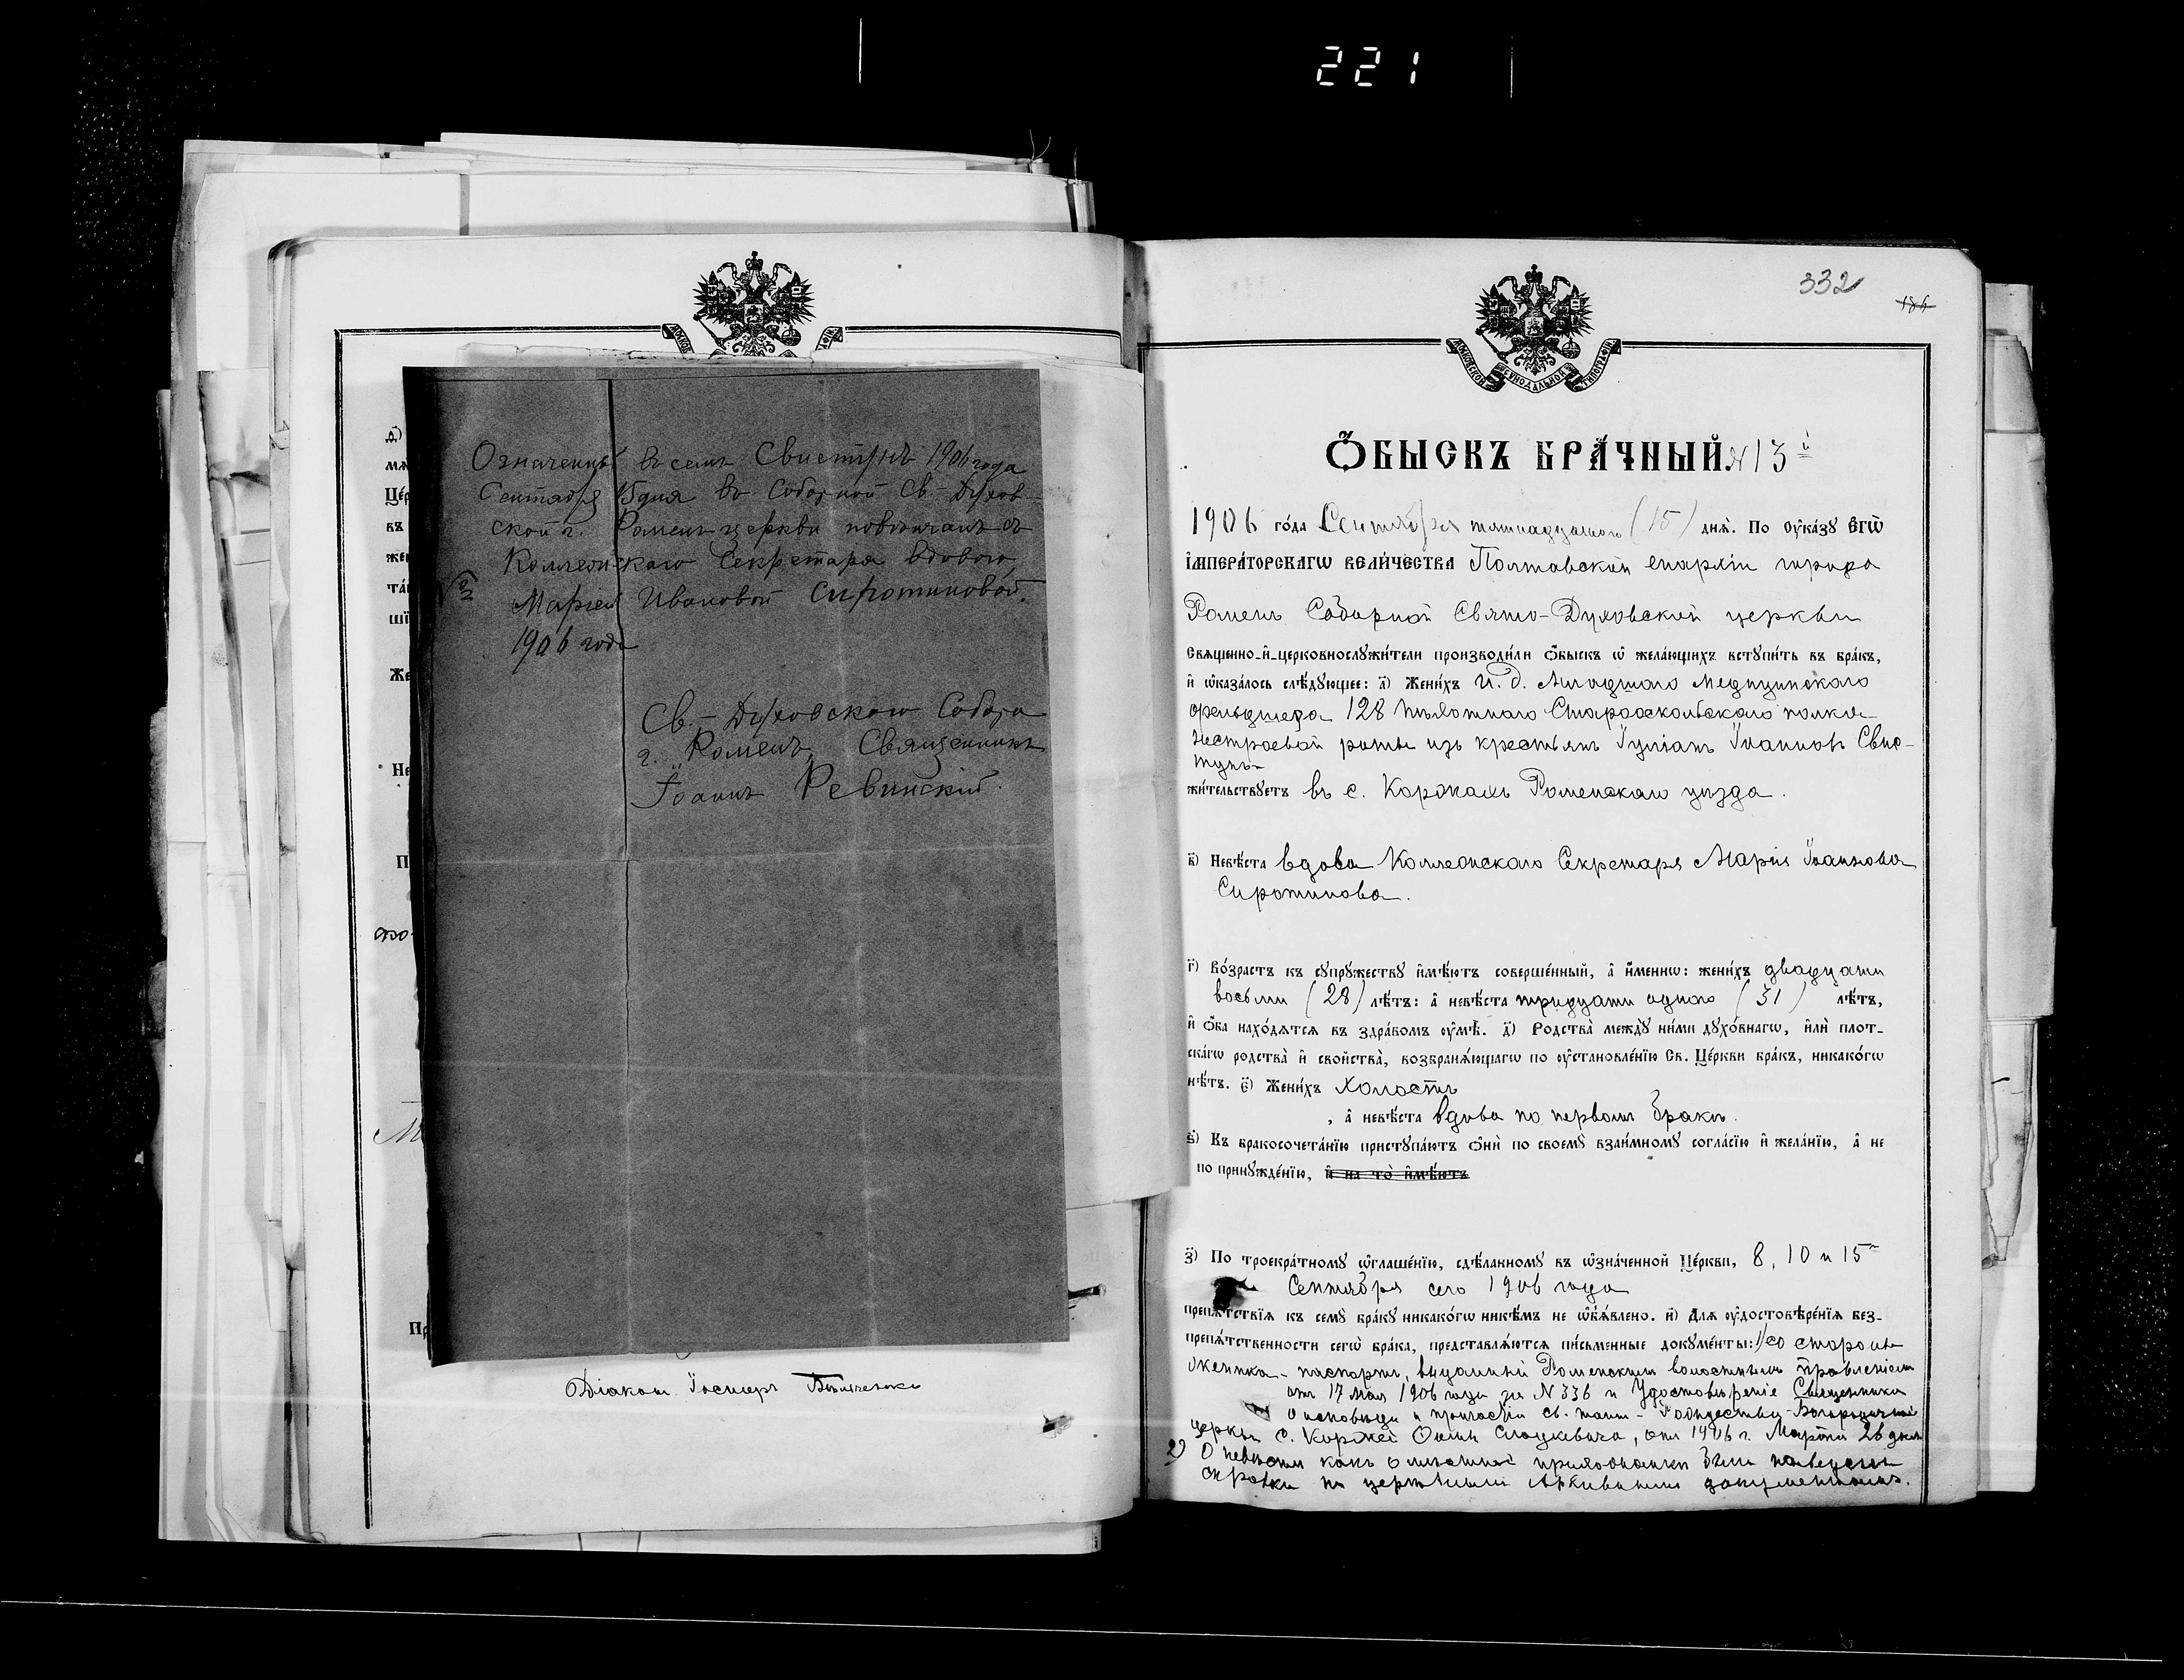 221
Означенный в семъ Свистунъ 1906 года
Сентября 15 дня въ Соборной Св.-Духов-
ской г. Роменъ церкви повѣнчанъ съ
Коллежскаго Секретаря вдовою
Маріей Ивановой Сиротиновой.
1906 года
Св.-Духовскаго Собора
г. Роменъ, Священникъ
Іоаннъ Ревинскій.
Діаконъ Іосифъ
332
МОСКОВСКОЙ СѴНОДАЛЬНОЙ ТИПОГРАФІИ
ѺБЫСКЪ БРА́ЧНЫЙ № 13й
1906 го́да Сентября пятнадцатаго (15) днѧ̀. По ᲂу҆ка́зꙋ є҆гѡ̀
і҆мпера́торскагѡ вели́чества Полтавской епархіи города
Роменъ Соборной Свято-Духовской церкви
свѧщенно-и҆-церковнослꙋжи́тели производи́ли ѻ҆́быскъ ѡ҆ жела́ющихъ встꙋпи́ть въ бра́къ,
и҆ ѡ҆каза́лось слѣ́дꙋющее: а҃) Жени́хъ И. д. Младшаго Медицинскаго
фельдшера 128 пѣхотнаго Старооскольскаго полка
нестроевой роты изъ крестьянъ Іуліанъ Іоанновъ Свис-
тунъ
жи́тельствꙋетъ въ с. Коржахъ Роменскаго уѣзда.
в҃) Невѣ́ста вдова Коллежскаго Секретаря Марія Іоаннова
Сиротинова.
г҃) Во́зрастъ къ сꙋпрꙋ́жествꙋ и҆мѣ́ютъ соверше́нный, а҆ и҆́меннѡ: жени́хъ двадцати
восьми (28) лѣ́тъ: а҆ невѣ́ста тридцати одного (31) лѣ́тъ,
и҆ ѻ҆́ба нахо́дѧтсѧ въ здра́вомъ ᲂу҆мѣ̀. д҃) Родства̀ междꙋ̀ ни́ми дꙋхо́внагѡ, и҆лѝ плот-
ска́гѡ родства̀ и҆ свойства̀, возбранѧ́ющагѡ по ᲂу҆становле́нїю Св. Це́ркви бра́къ, никако́гѡ
нѣ́тъ. є҃) Жени́хъ холостъ
, а҆ невѣ́ста вдова по первомъ бракѣ.
ѕ҃) Къ бракосочета́нїю пристꙋпа́ютъ ѻ҆нѝ по своемꙋ̀ взаи́мномꙋ согла́сїю и҆ жела́нїю, а҆ не
по принꙋжде́нїю, и҆ на то̀ и҆мѣ́ютъ
з҃) По троекра́тномꙋ ѡ҆глаше́нїю, сдѣ́ланномꙋ въ ѡ҆зна́ченной Це́ркви, 8, 10 и 15
Сентября сего 1906 года
препѧ́тствїѧ къ семꙋ̀ бра́кꙋ никако́гѡ никѣ́мъ не ѡ҆б̾ѧ́влено. и҃) Длѧ ᲂу҆достовѣре́нїѧ без-
препѧ́тственности сегѡ̀ бра́ка, представлѧ́ютсѧ пи́сьменные докꙋме́нты: 1) со стороны
жениха - паспортъ, выданный Роменскимъ волостнымъ правленіемъ
отъ 17 мая 1906 года за № 336 и Удостовѣреніе Священника
о исповѣди и причастіи св. таинъ - Рождество-Богородичной
церкви с. Коржей, отъ 1906 г. Марта 26 дня
2) О невѣстѣ какъ о прихожанкѣ были наведены
справки по церковнымъ архивнымъ документамъ.